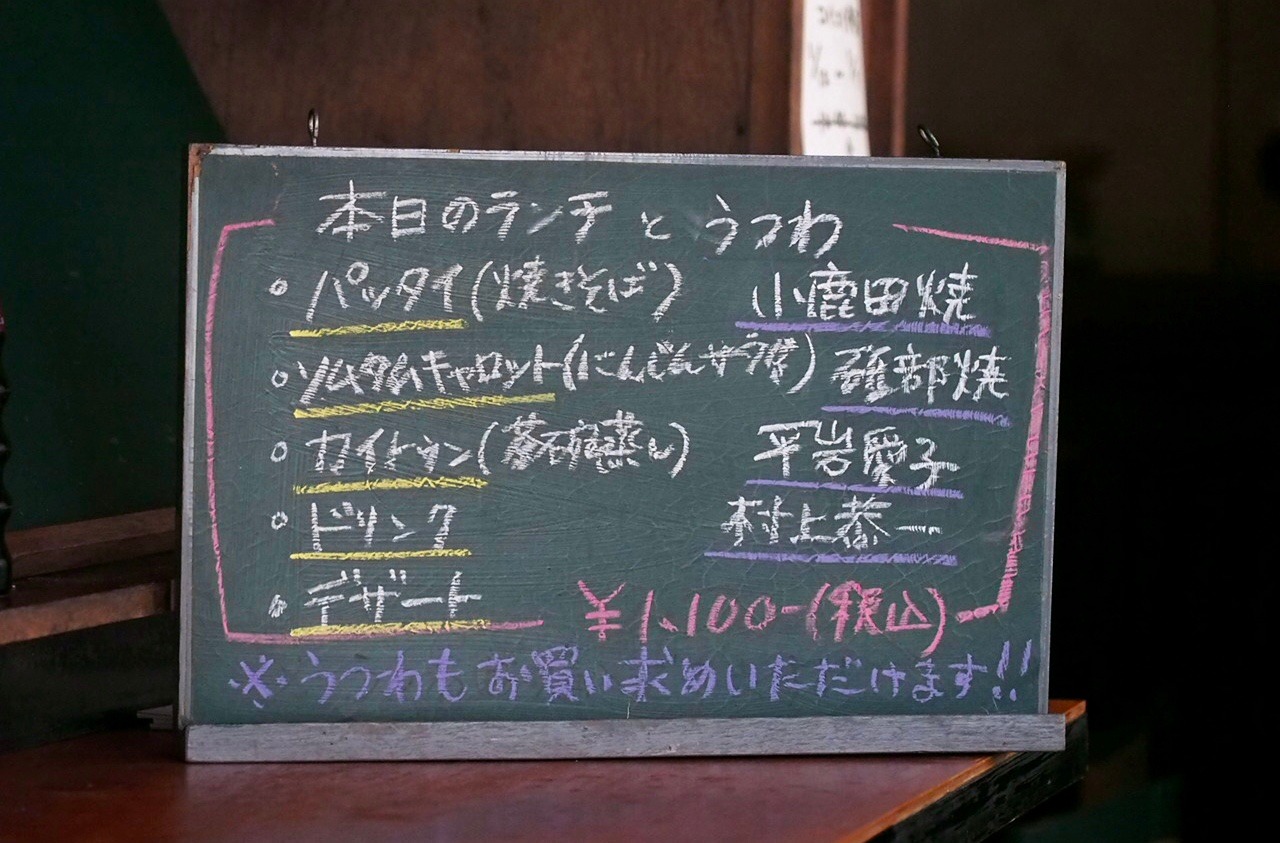 本日のランチとうつわ
・パッタイ(焼きそば) 小鹿田焼
・ソムタムキャロット(にんじんサラダ) 砥部焼
・カイトゥン(茶碗蒸し) 平岩愛子
・ドリンク 村上恭一
・デザート ¥1,100-(税込)
※うつわもお買い求めいただけます!!